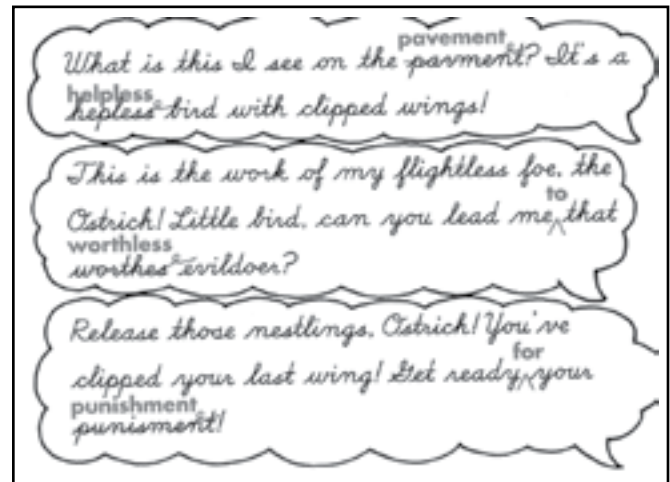 pavement
What is this I see on the parment? It's a
helpless
hepless bird with clipped wings!
This is the work of my flightless foe, the
to
Ostrich! Little bird, can you lead me that
worthless
worthes evildoer?
Release those nestlings, Ostrich! You've
for
clipped your last wing! Get ready your
punishment
punisment!